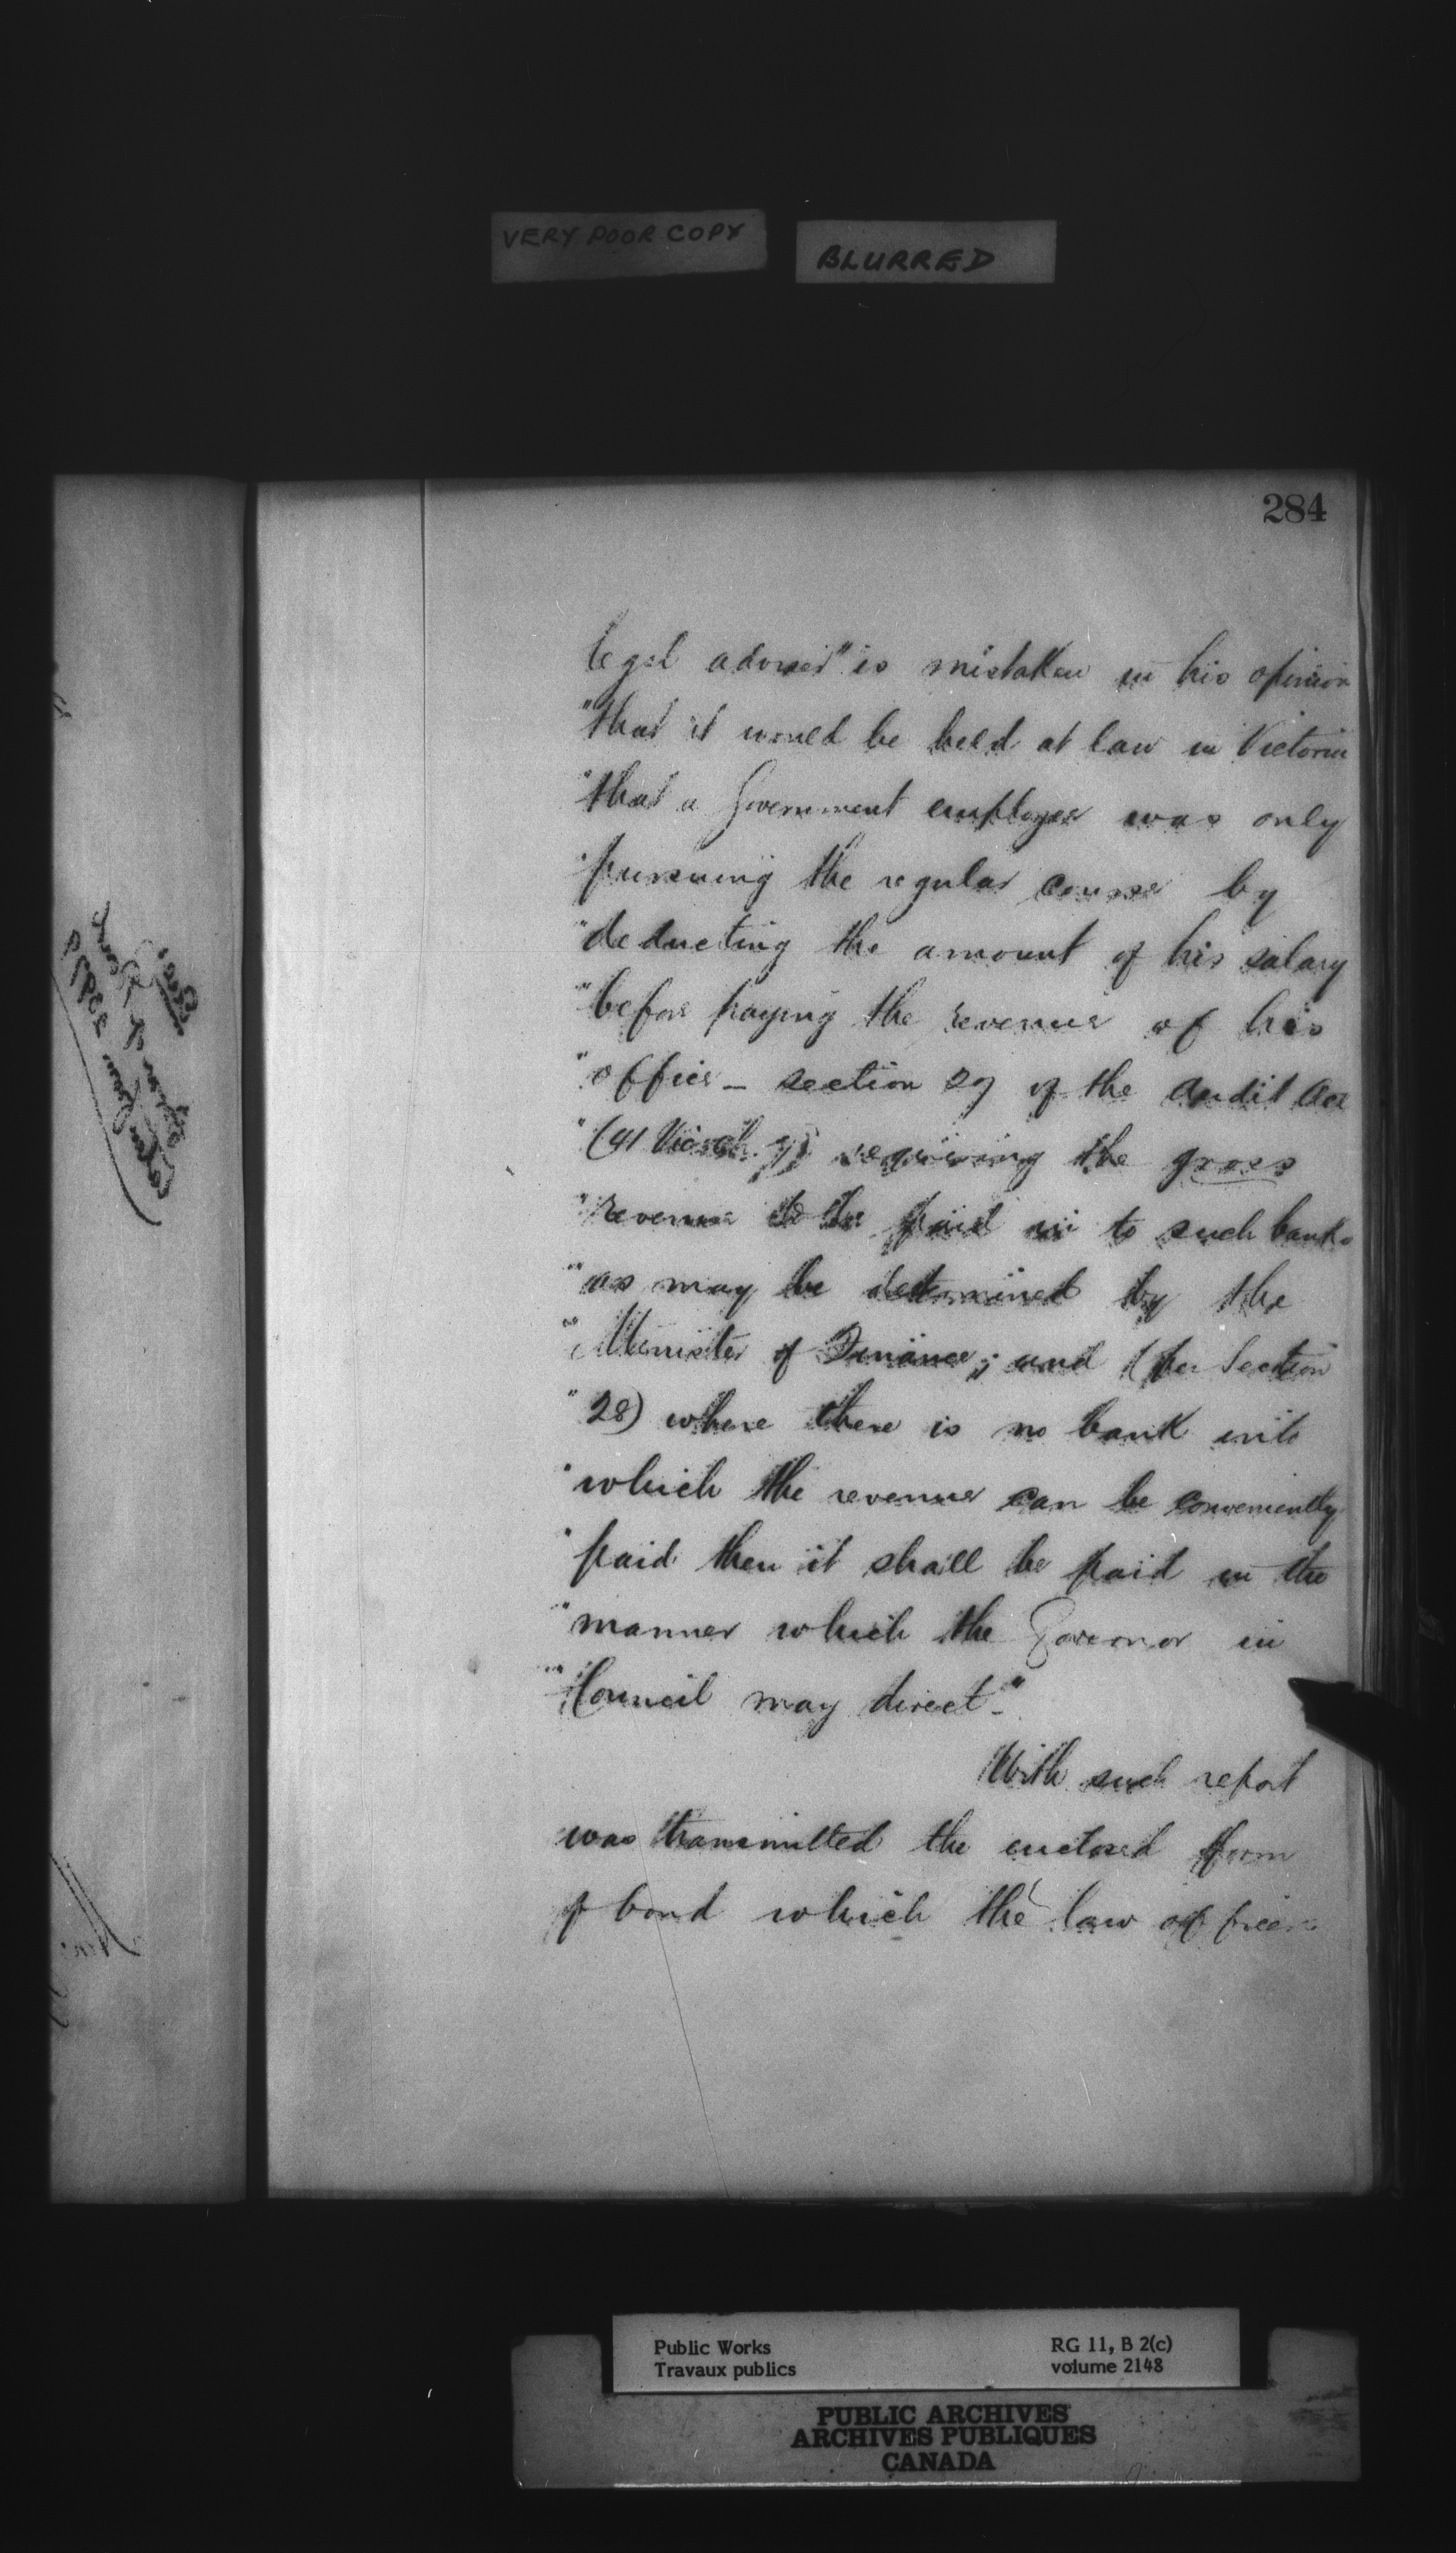 VERY POOR COPY
BLURRED
284
legal adviser" is mistaken in his opinion
"that it would be held at law in Victoria
"that a Government employee was only
"pursuing the regular course by
"deducting the amount of his salary
"before paying the revenue of his
"office – section 29 of the Audit Act
"(41 Vic. ch. 7) requiring the gross
"revenue to be paid in to such banks
"as may be determined by the
"Minister of Finance; and (per Section
"28) where there is no bank into
"which the revenue can be conveniently
"paid then it shall be paid in the
"manner which the Governor in
"Council may direct –"
With such report
was transmitted the enclosed form
of bond which the law officers
Public Works
Travaux publics
RG 11, B 2(c)
volume 2148
PUBLIC ARCHIVES
ARCHIVES PUBLIQUES
CANADA